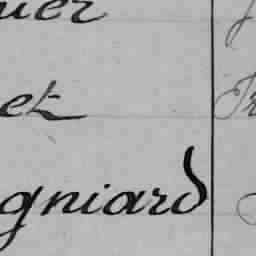 uer
et
gniard